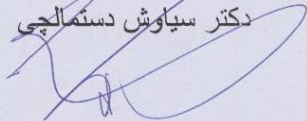 دکتر سیاوش دستمالچی